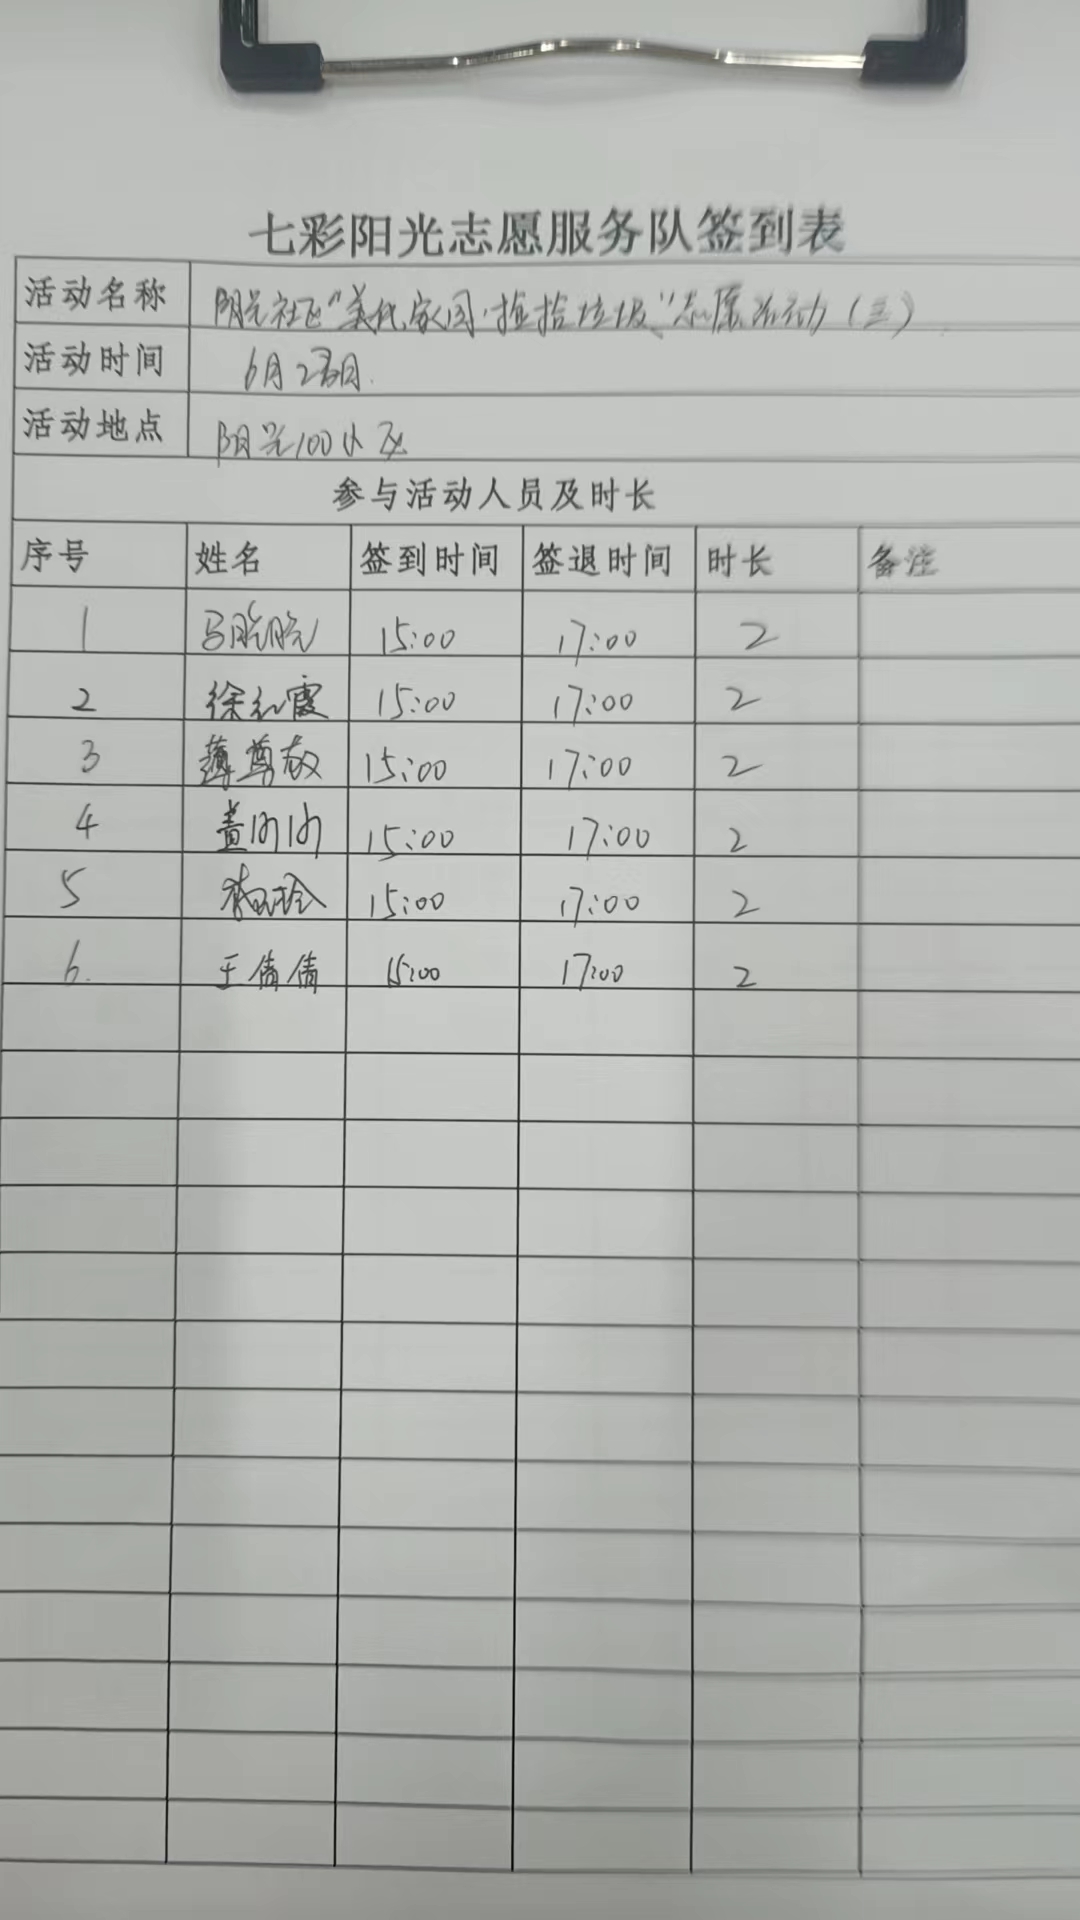 七彩阳光志愿服务队签到表
活动名称 阳光社区"美化家园·捡拾垃圾"志愿活动（三）
活动时间 6月2日
活动地点 阳光100小区
参与活动人员及时长
序号 姓名 签到时间 签退时间 时长 备注
1 马晓晓 15:00 17:00 2
2 徐红霞 15:00 17:00 2
3 薄尊敬 15:00 17:00 2
4 盖 15:00 17:00 2
5 15:00 17:00 2
6. 王倩倩 15:00 17:00 2